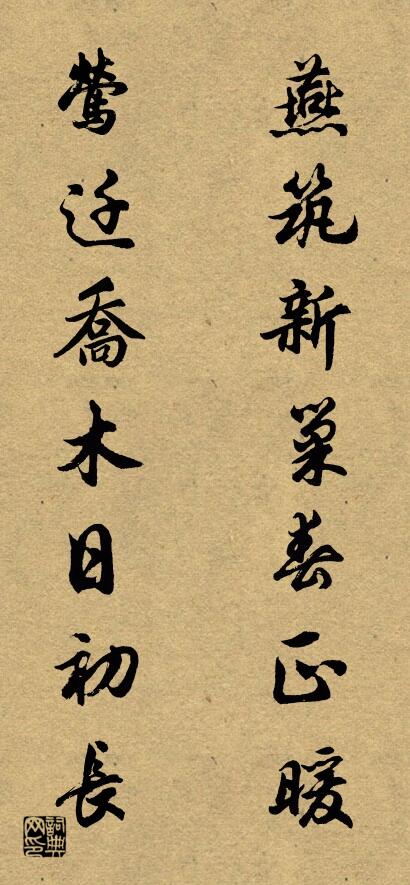 燕筑新巢春正暖
莺迁喬木日初長
詞典网印